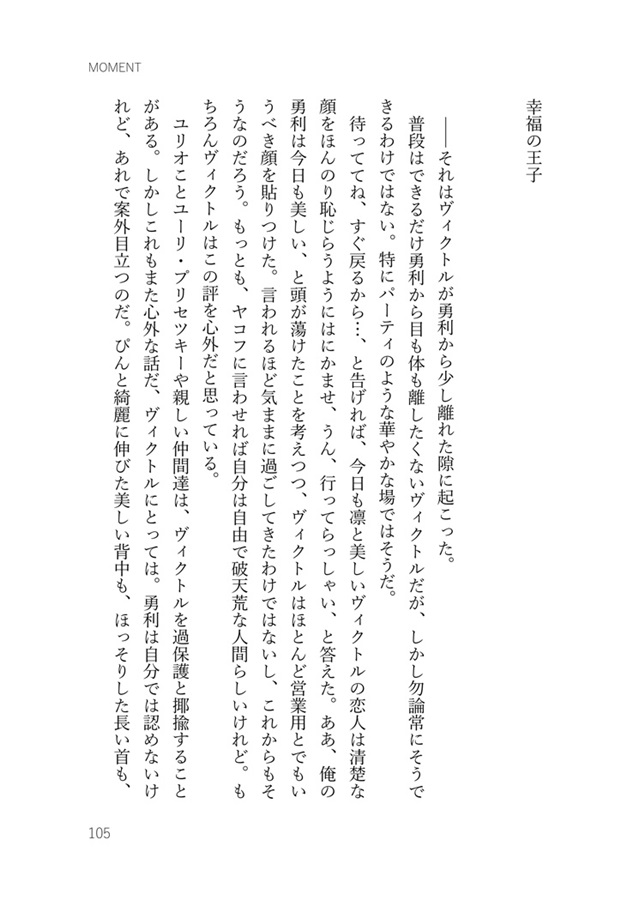 MOMENT
幸福の王子
――それはヴィクトルが勇利から少し離れた隙に起こった。
普段はできるだけ勇利から目も体も離したくないヴィクトルだが、しかし勿論常にそうで
きるわけではない。特にパーティのような華やかな場ではそうだ。
待っててね、すぐ戻るから…、と告げれば、今日も凛と美しいヴィクトルの恋人は清楚な
顔をほんのり恥じらうようにはにかませ、うん、行ってらっしゃい、と答えた。ああ、俺の
勇利は今日も美しい、と頭が蕩けたことを考えつつ、ヴィクトルはほとんど営業用とでもい
うべき顔を貼りつけた。言われるほど気ままに過ごしてきたわけではないし、これからもそ
うなのだろう。もっとも、ヤコフに言わせれば自分は自由で破天荒な人間らしいけれど。も
ちろんヴィクトルはこの評を心外だと思っている。
ユリオことユーリ・プリセツキーや親しい仲間達は、ヴィクトルを過保護と揶揄すること
がある。しかしこれもまた心外な話だ、ヴィクトルにとっては。勇利は自分では認めないけ
れど、あれで案外目立つのだ。ぴんと綺麗に伸びた美しい背中も、ほっそりした長い首も、
105